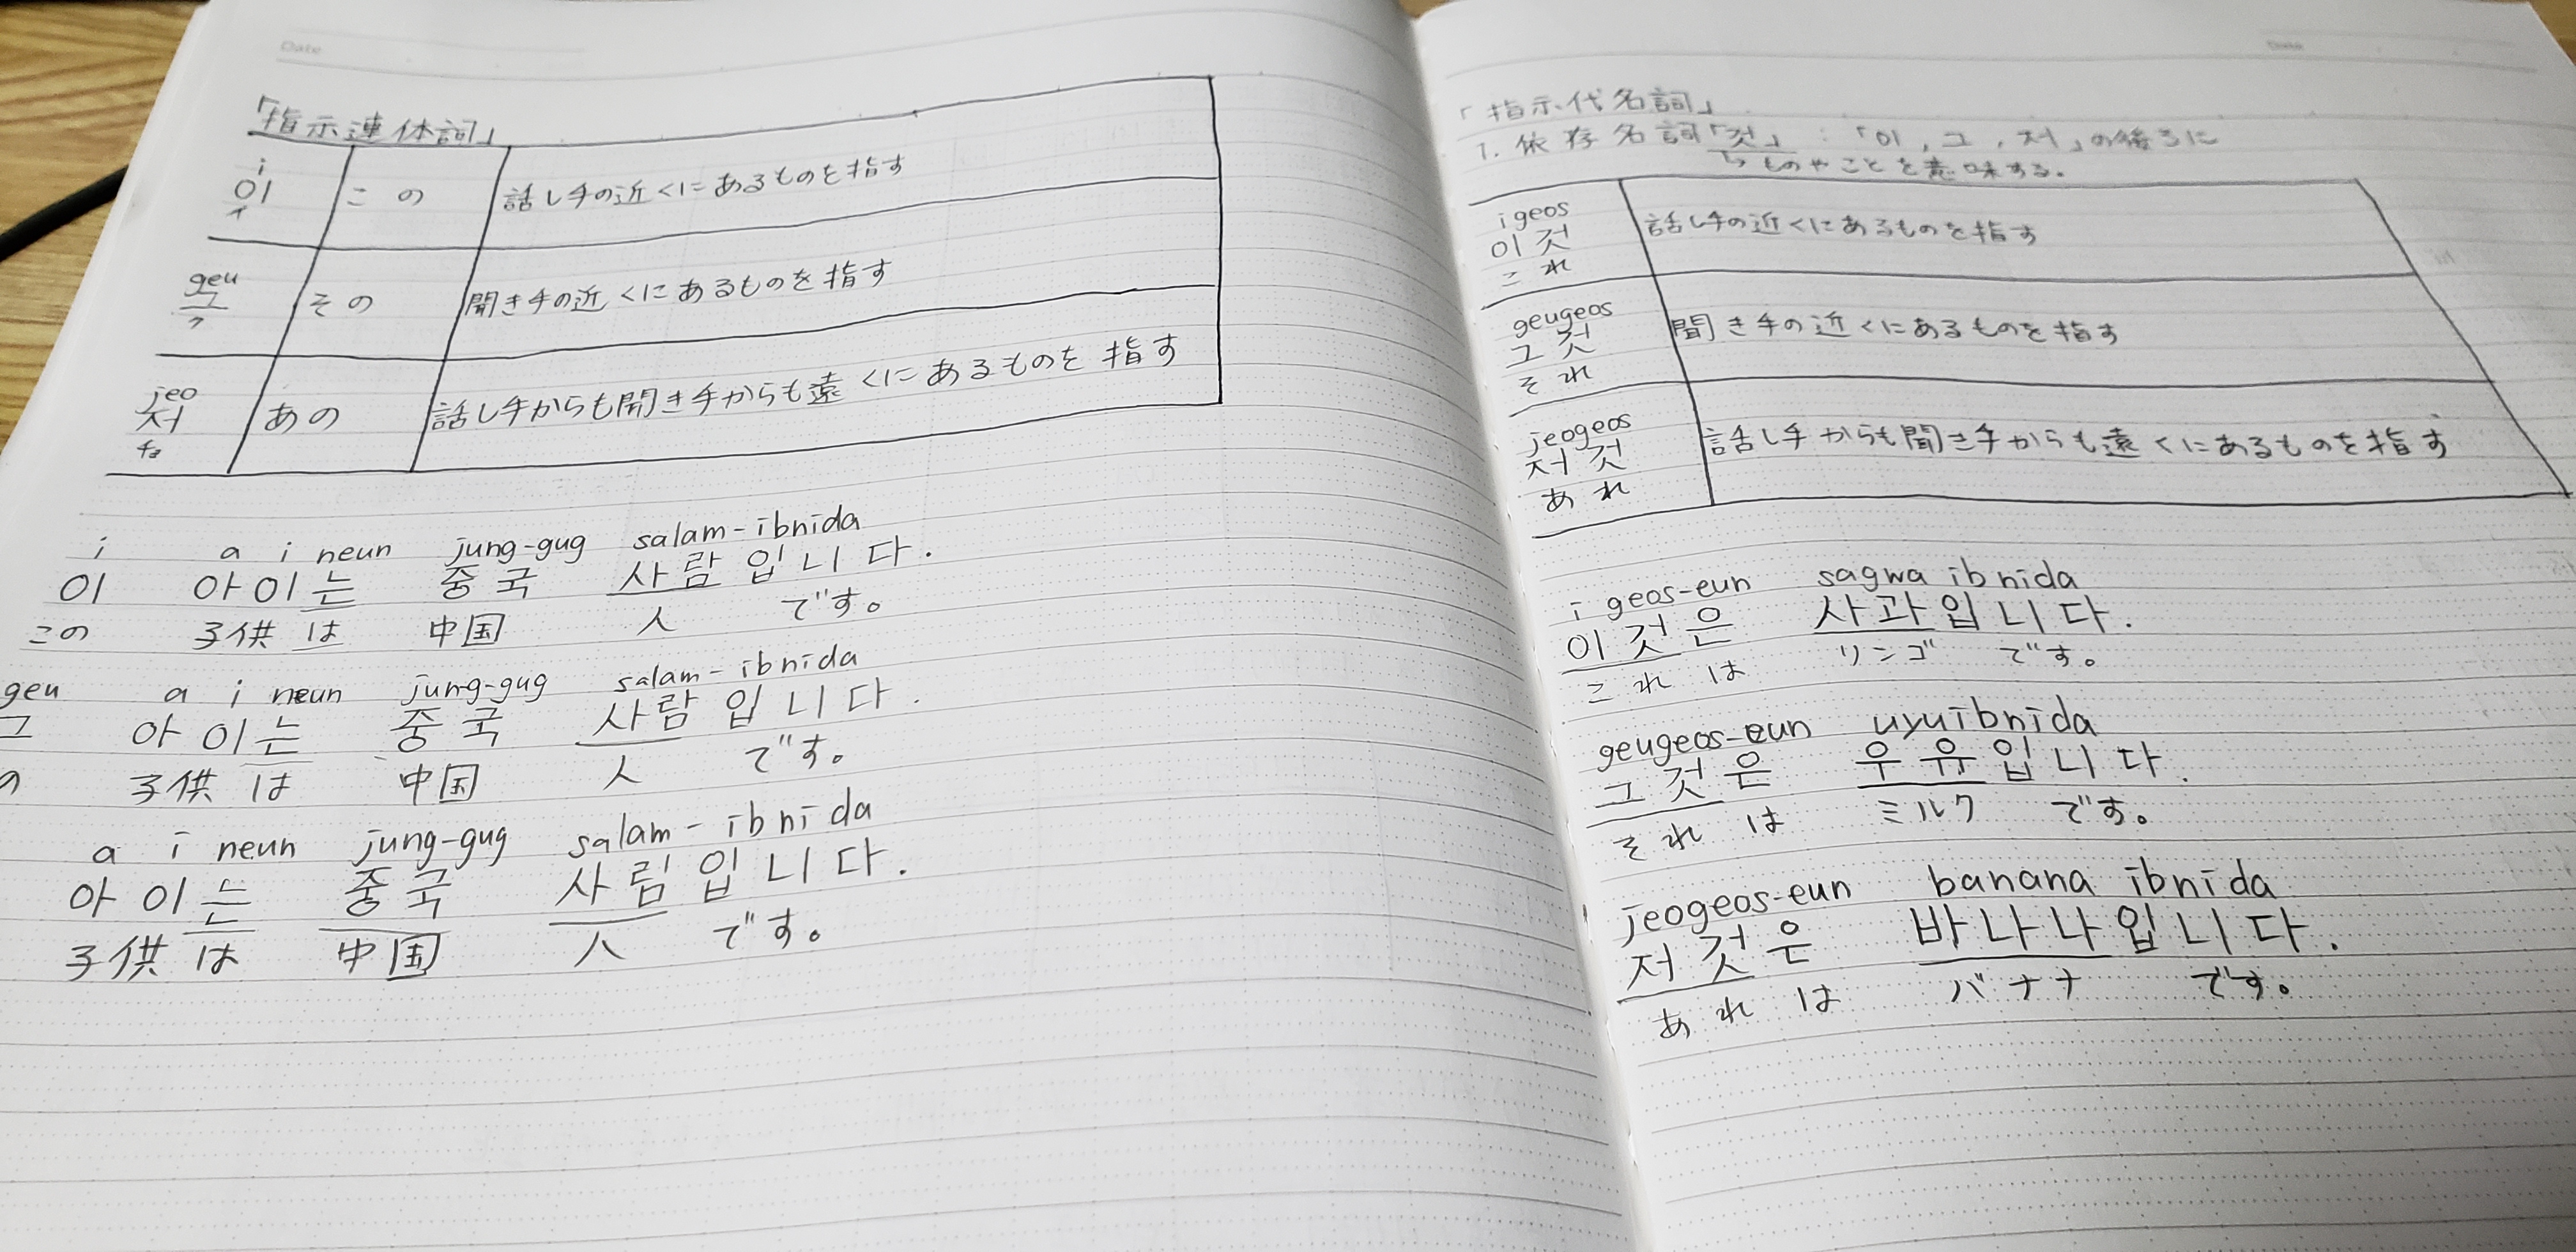 Date
「指示連体詞」
i
이 この 話し手の近くにあるものを指す
イ
geu
그 その 聞き手の近くにあるものを指す
ク
jeo
저 あの 話し手からも聞き手からも遠くにあるものを指す
チョ
i a i neun jung-gug salam-ibnida
이 아이는 중국 사람입니다.
この 子供は 中国 人 です。
geu a i neun jung-gug salam-ibnida
그 아이는 중국 사람입니다.
の 子供は 中国 人 です。
a i neun jung-gug salam-ibnida
아이는 중국 사림입니다.
子供は 中国 人 です。
Date
「指示代名詞」
1. 依存名詞「것」:「이, 그, 저」の後ろに
↳ものやことを意味する。
igeos
이것 話し手の近くにあるものを指す
これ
geugeos
그것 聞き手の近くにあるものを指す
それ
jeogeos
저것 話し手からも聞き手からも遠くにあるものを指す
あれ
i geos-eun sagwa ibnida
이것은 사과입니다.
これは リンゴ です。
geugeos-eun uyuibnida
그것은 우유입니다.
それは ミルク です。
jeogeos-eun banana ibnida
저것은 바나나입니다.
あれは バナナ です。